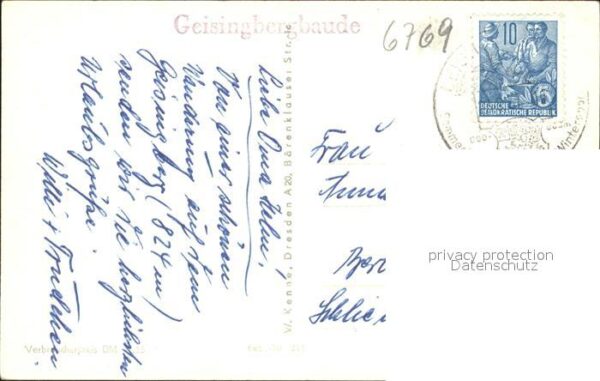 Geisingbergbaude
6769
10
DEUTSCHE
DEMOKRATISCHE REPUBLIK
Liebe Oma Helm!
Von einer schönen
Wanderung auf dem
Geisingberg (824 m)
senden wir die herzlichsten
Urlaubsgrüße.
Willi + Trudchen.
W. Kenne, Dresden A 20, Bärenklauser Str.
Frau
Anna
Ber
Schlie
privacy protection
Datenschutz
Verbraucherpreis DM